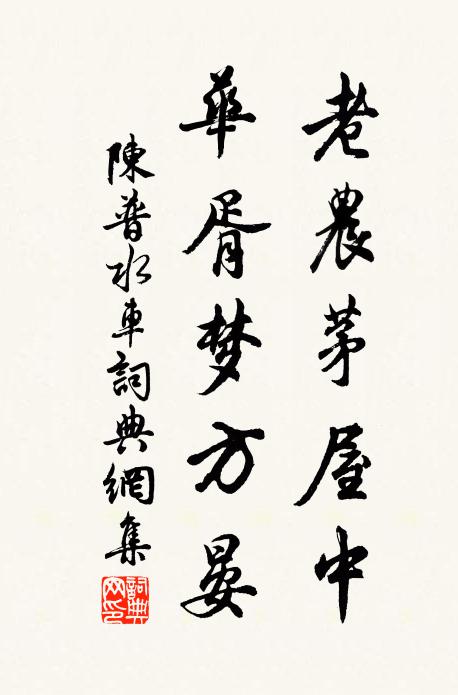 老農茅屋中
華胥梦方晏
陳普水車詞典網集
詞典網印